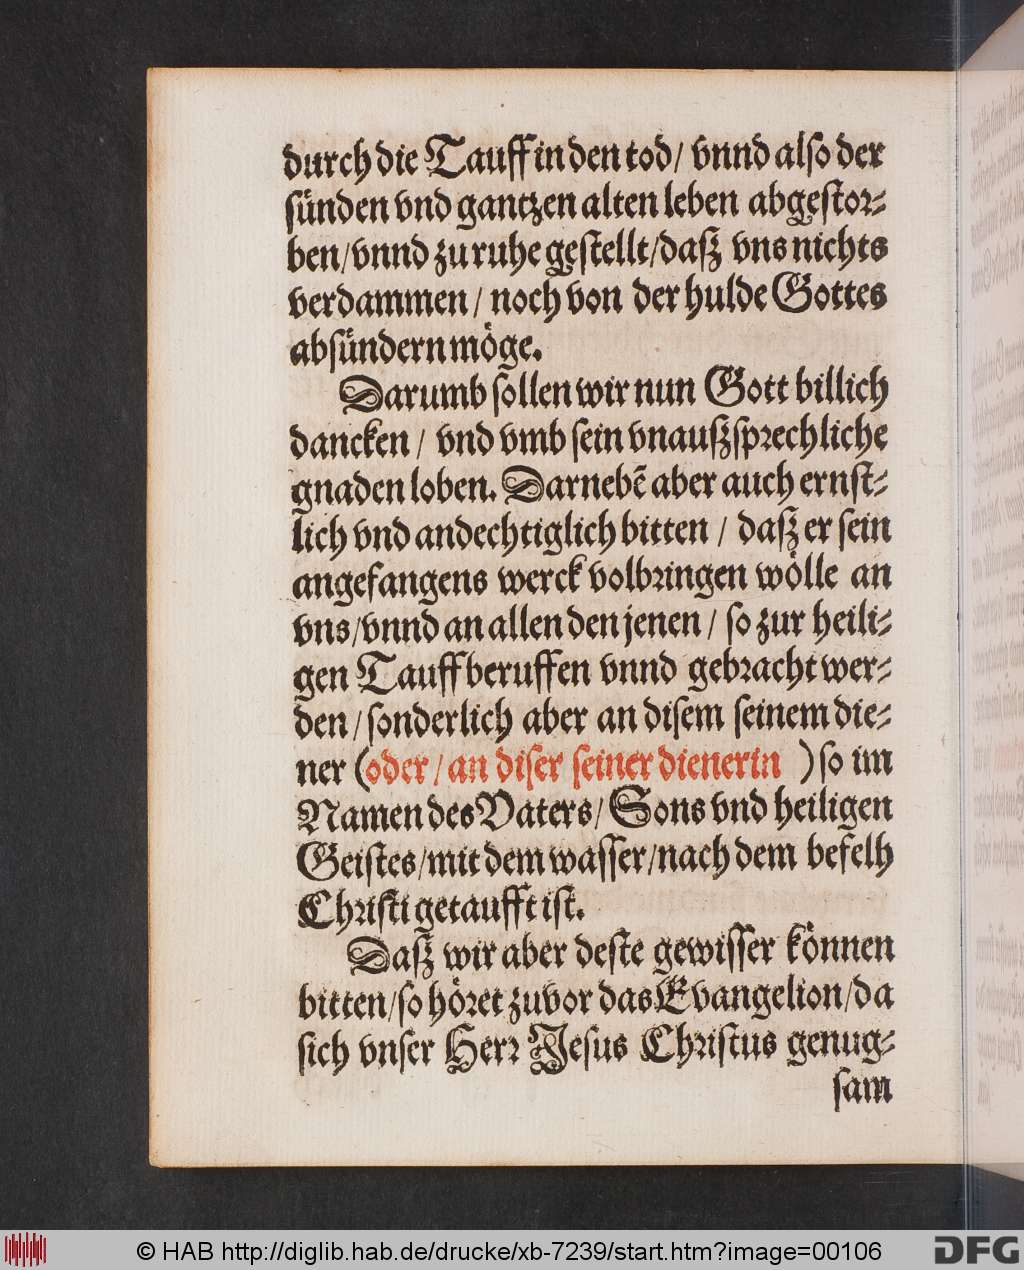 durch die Tauff in den tod/ vnnd also der
sünden vnd gantzen alten leben abgestor⸗
ben/vnnd zu ruhe gestellt/daß vns nichts
verdammen/ noch von der hulde Gottes
absündern möge.
Darumb sollen wir nun Gott billich
dancken/ vnd vmb sein vnaußsprechliche
gnaden loben. Darnebē aber auch ernst⸗
lich vnd andechtiglich bitten/ daß er sein
angefangens werck volbringen wölle an
vns/vnnd an allen den jenen/ so zur heili⸗
gen Tauff beruffen vnnd gebracht wer⸗
den/sonderlich aber an disem seinem die⸗
ner (oder/ an diser seiner dienerin ) so im
Namen des Vaters/ Sons vnd heiligen
Geistes/mit dem wasser/nach dem befelh
Christi getaufft ist.
Daß wir aber deste gewisser können
bitten/so höret zuvor das Evangelion/da
sich vnser Herr Jesus Christus genug⸗
sam
© HAB http://diglib.hab.de/drucke/xb-7239/start.htm?image=00106
DFG